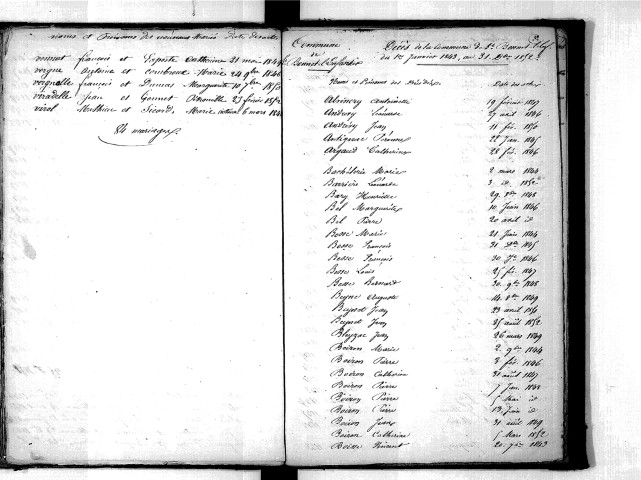 noms et Prénoms des nouveaux Mariés Date des actes
vermat françois et Exposte Catherine 21 mai 1849
vergne Antoine et Combroux Marie 24 9bre 1846
vergnolle françois et Dumas Marguerite 10 7bre 1850
viradelle Jean et Gounet Petronille 23 février 1852
virol Mathieu et Sicard Marie 6 mars 184
84 mariages
Commune de Bonnet
Décès de la commune de St. Bonnet
du 1er janvier 1843, au 31 Xbre 1852
Noms et Prénoms des Décédés Date des actes
Antoinette 19 février 1847
Andrieux 27 avril 1846
Andrieux Jean 11 fév. 1850
22 Juin 1845
Argaud Catherine 28 fév. 1846
Bachélerie Marie 2 mars 1844
Barrière Léonarde 3 id 1850
Bary Henriette 29 1848
Bel Marguerite 10 Juin 1846
Bel Pierre 20 avril id
Besse Marie 21 Juin 1844
Besse François 31 Xbre 1845
Besse François 30 1846
Besse Louis 25 fév. 1847
Besse Bernard 30 9bre 1848
Beyne Auguste 14 8bre 1849
Beynet Jean 23 avril 1851
Beynet Jean 25 août 1852
Jean 26 mars 1849
Boiron Marie 2 9bre 1844
Boiron Pierre 3 fév. 1846
Boiron Catherine 31 août 1847
Boiron Pierre 7 Jan. 1848
Boiron Pierre 5 Mai id
Boiron Pierre 13 Juin id
Boiron Jean 31 août 1849
Boiron Catherine 5 Mars 1852
Boisse Vincent 20 7bre 1843